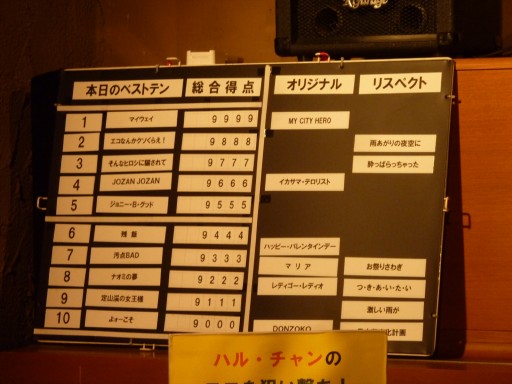 本日のベストテン 総合得点 オリジナル リスペクト
1 マイウェイ 9999 MY CITY HERO
2 エコなんかクソくらえ! 9888 雨あがりの夜空に
3 そんなヒロシに騙されて 9777 酔っぱらっちゃった
4 JOZAN JOZAN 9666 イカサマ・テロリスト
5 ジョニー・B・グッド 9555
6 残飯 9444 ハッピー・バレンタインデー
7 汚点BAD 9333 マリア お祭りさわぎ
8 ナオミの夢 9222 レディゴー・レディオ つ・き・あ・い・た・い
9 定山渓の女王様 9111 激しい雨が
10 よぉーこそ 9000 DONZOKO 化計画
ハル・チャンの